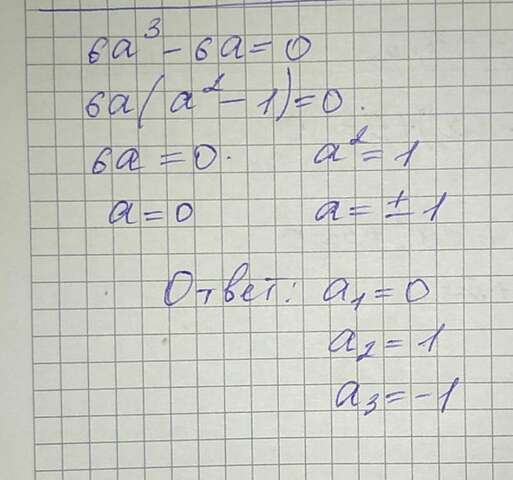 6a³ - 6a = 0
6a(a² - 1) = 0.
6a = 0. a² = 1
a = 0 a = ± 1
Ответ: a₁ = 0
a₂ = 1
a₃ = -1